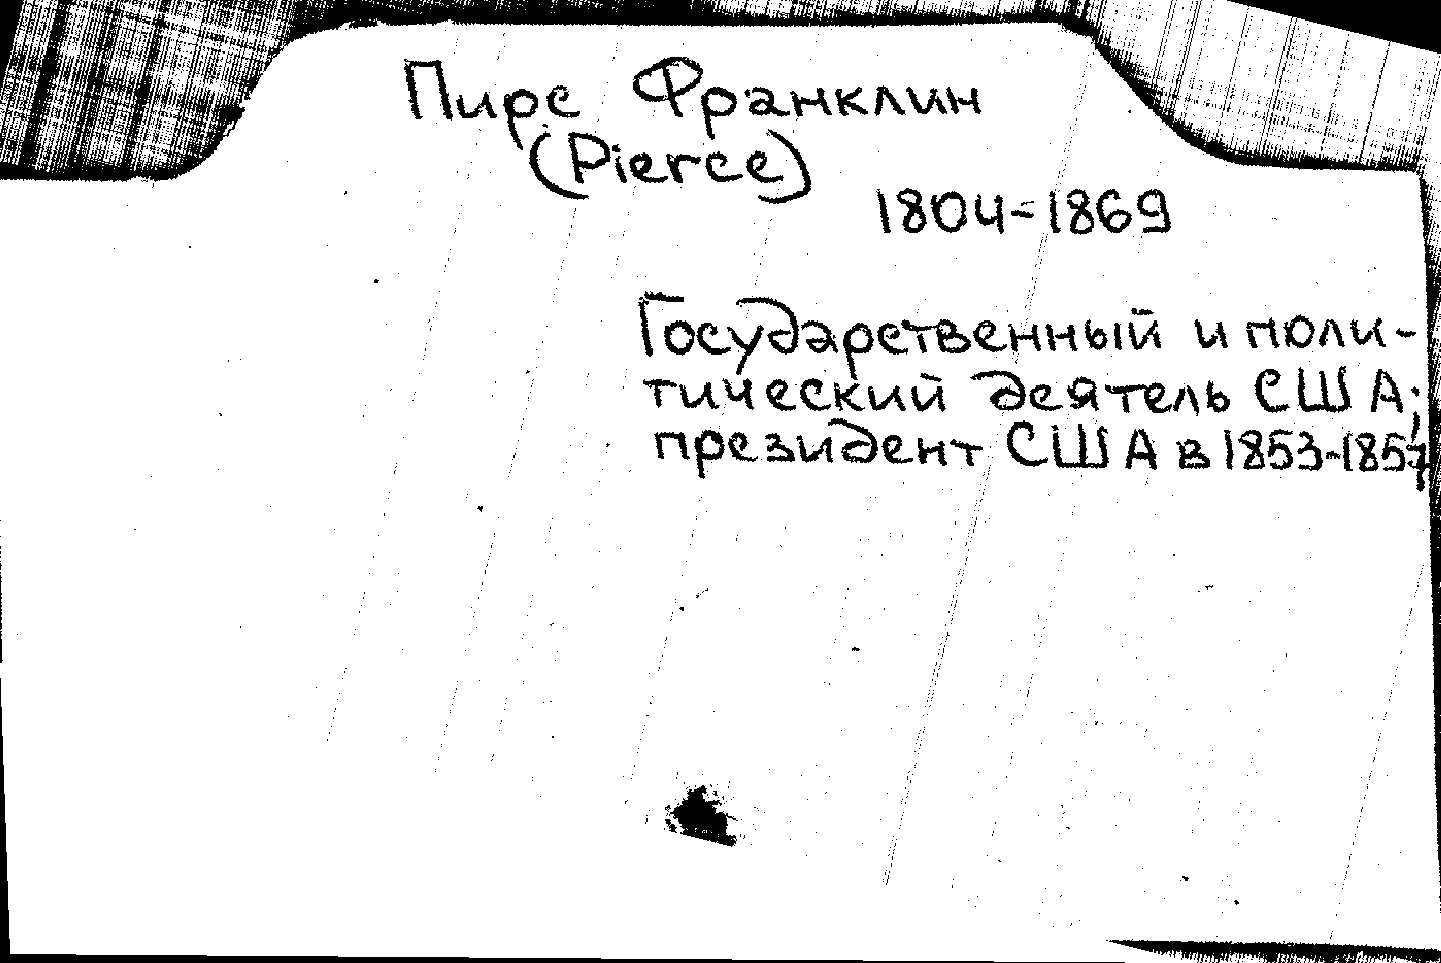 Пирс Франклин
(Pierce)
1804-1869
Государственный и поли-
тический деятель США;
президент США в 1853-1857